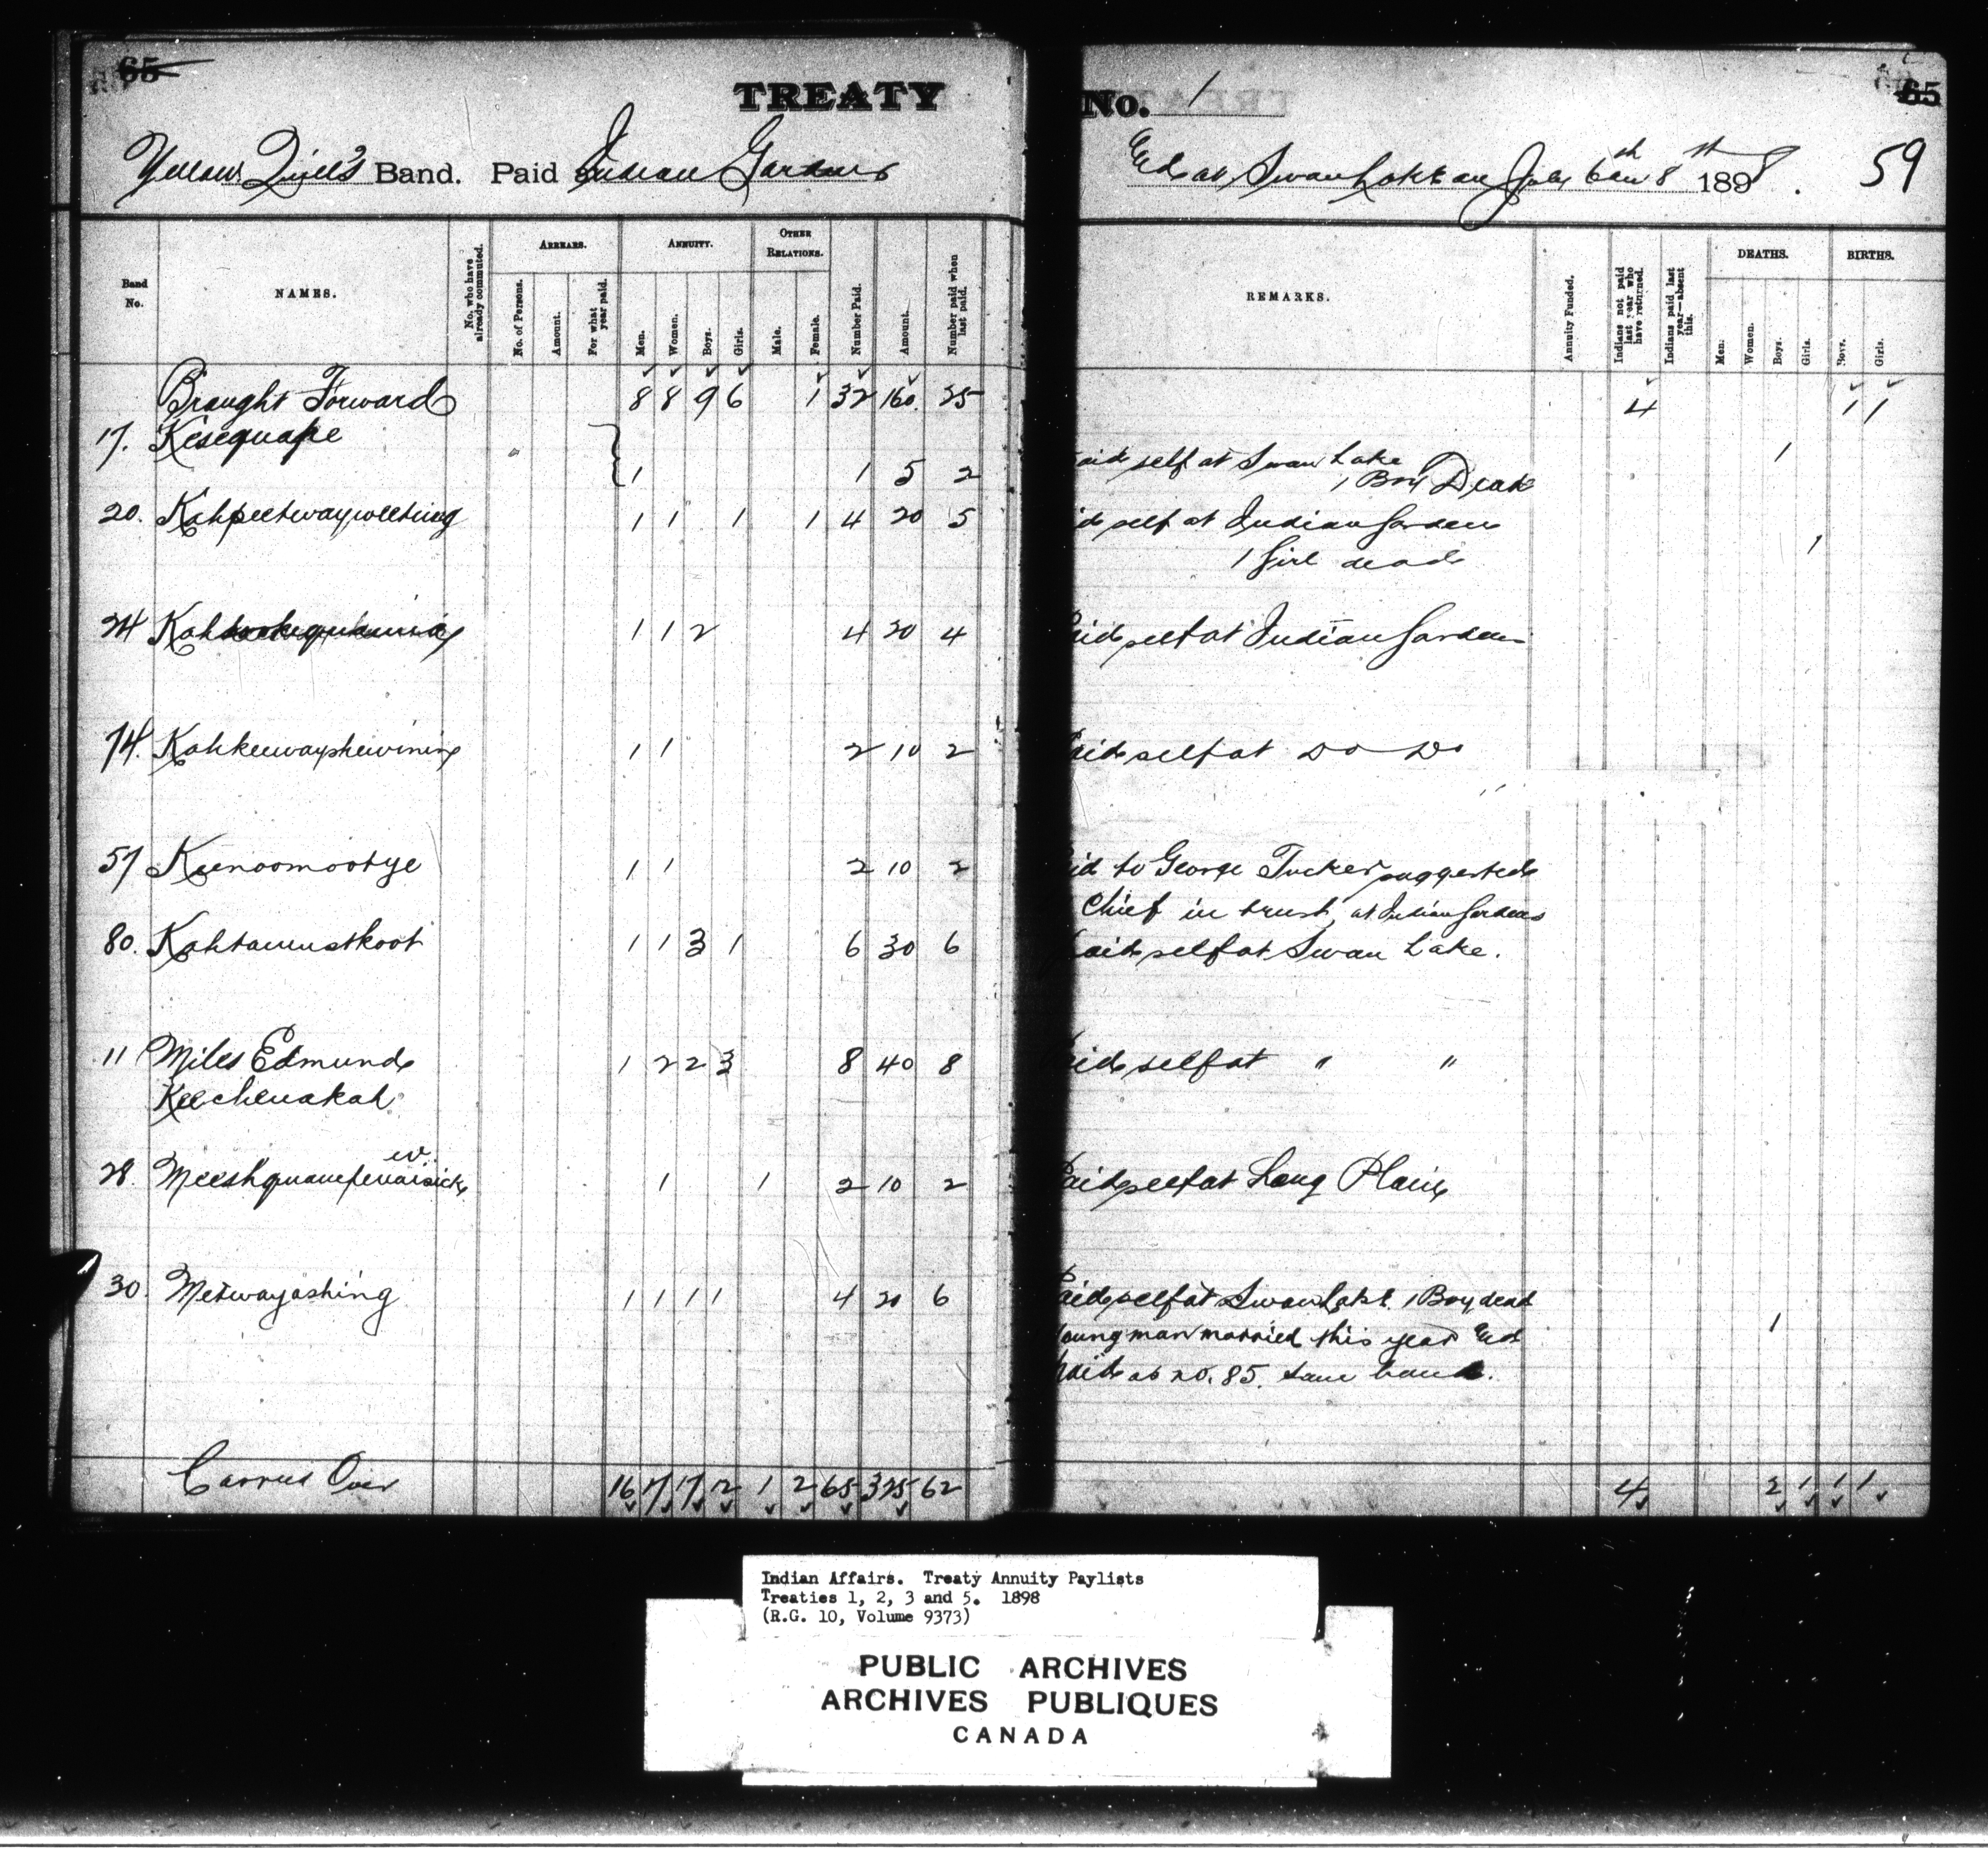 65
TREATY No. 1
65
Yellow Quill's Band. Paid Indian Gardens
and at Swan Lake on July 6th and 8st 1898. 59
Band No.
NAMES.
No. who have already commuted.
ARREARS.
No. of Persons.
Amount.
For what year paid.
ANNUITY.
Men.
Women.
Boys.
Girls.
OTHER RELATIONS.
Male.
Female.
Number Paid.
Amount.
Number paid when last paid.
REMARKS.
Annuity Funded.
Indians not paid last year who have returned.
Indians paid last year—absent this.
DEATHS.
Men.
Women.
Boys.
Girls.
BIRTHS.
Boys.
Girls.
Brought Forward 8 8 9 6 1 32 160. 25 4 1 1
17. Kesequape 1 1 5 2 aid self at Swan Lake 1
1 Boy Dead
20. Kahpeetwayweetung 1 1 1 1 4 20 5 id self at Indian Gardens
1 Girl dead 1
24 1 1 2 4 20 4 aid self at Indian Gardens
74. Kahkeewayshewining 1 1 2 10 2 aid self at Do Do
57 Keenoomootye 1 1 2 10 2 id to George Tucker suggested
Chief in trust, at Indian Gardens
80. Kahtaunstkoot 1 1 3 1 6 30 6 aid self at Swan Lake.
11 Miles Edmund 1 2 2 3 8 40 8 aid self at " "
Keechenakah
28. 1 1 2 10 2 Paid self at Long Plain
30. Metwayashing 1 1 1 1 4 20 6 aid self at Swan Lake 1 Boy dead
Young man married this year and 1
paid as no. 85. same band.
Carried Over 16 17 17 12 1 2 65 325 62 4 2 1 1 1
Indian Affairs. Treaty Annuity Paylists
Treaties 1, 2, 3 and 5. 1898
(R.G. 10, Volume 9373)
PUBLIC ARCHIVES
ARCHIVES PUBLIQUES
CANADA